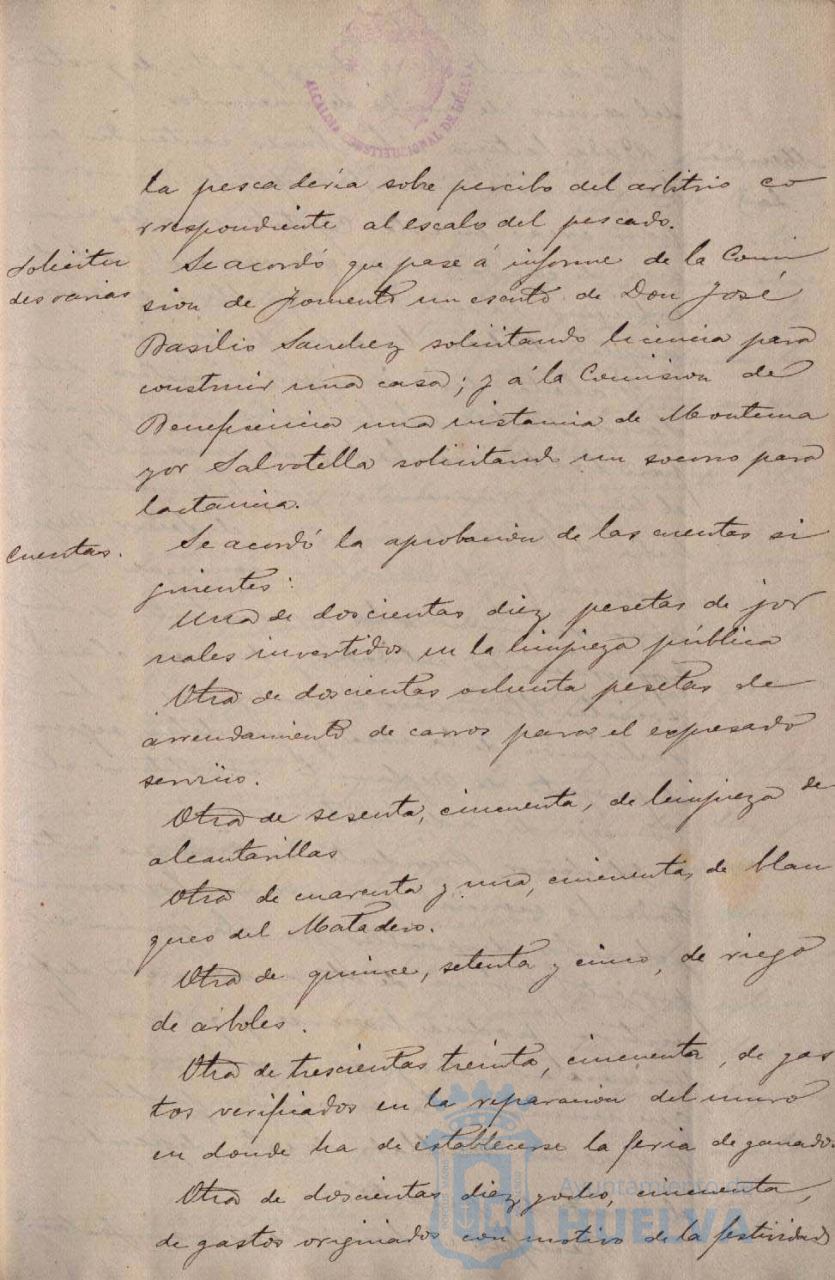 ALCALDIA CONSTITUCIONAL DE HUELVA
la pescadería sobre percibo del arbitrio co
rrespondiente al escalo del pescado.
Solicitu
des varias
Se acordó que pase á informe de la Comi
sion de Fomento un escrito de Don José
Basilio Sanchez solicitando licencia para
construir una casa; y á la Comision de
Beneficencia una instancia de Montema
yor Salvotella solicitando un socorro para
lactancia.
Cuentas.
Se acordó la aprobación de las cuentas si
guientes:
Una de doscientas diez pesetas de jor
nales invertidos en la limpieza pública
Otra de doscientas ochenta pesetas de
arrendamiento de carros para el expresado
servicio.
Otra de sesenta, cincuenta, de limpieza de
alcantarillas
Otra de cuarenta y una, cincuenta, de blan
queo del Matadero.
Otra de quince, setenta y cinco, de riego
de árboles.
Otra de trescientas treinta, cincuenta, de gas
tos verificados en la reparacion del muro
en donde ha de establecerse la feria de ganado.
Otra de doscientas diez y ocho, cincuenta,
de gastos originados con motivo de la festividad
Ayuntamiento de
HUELVA